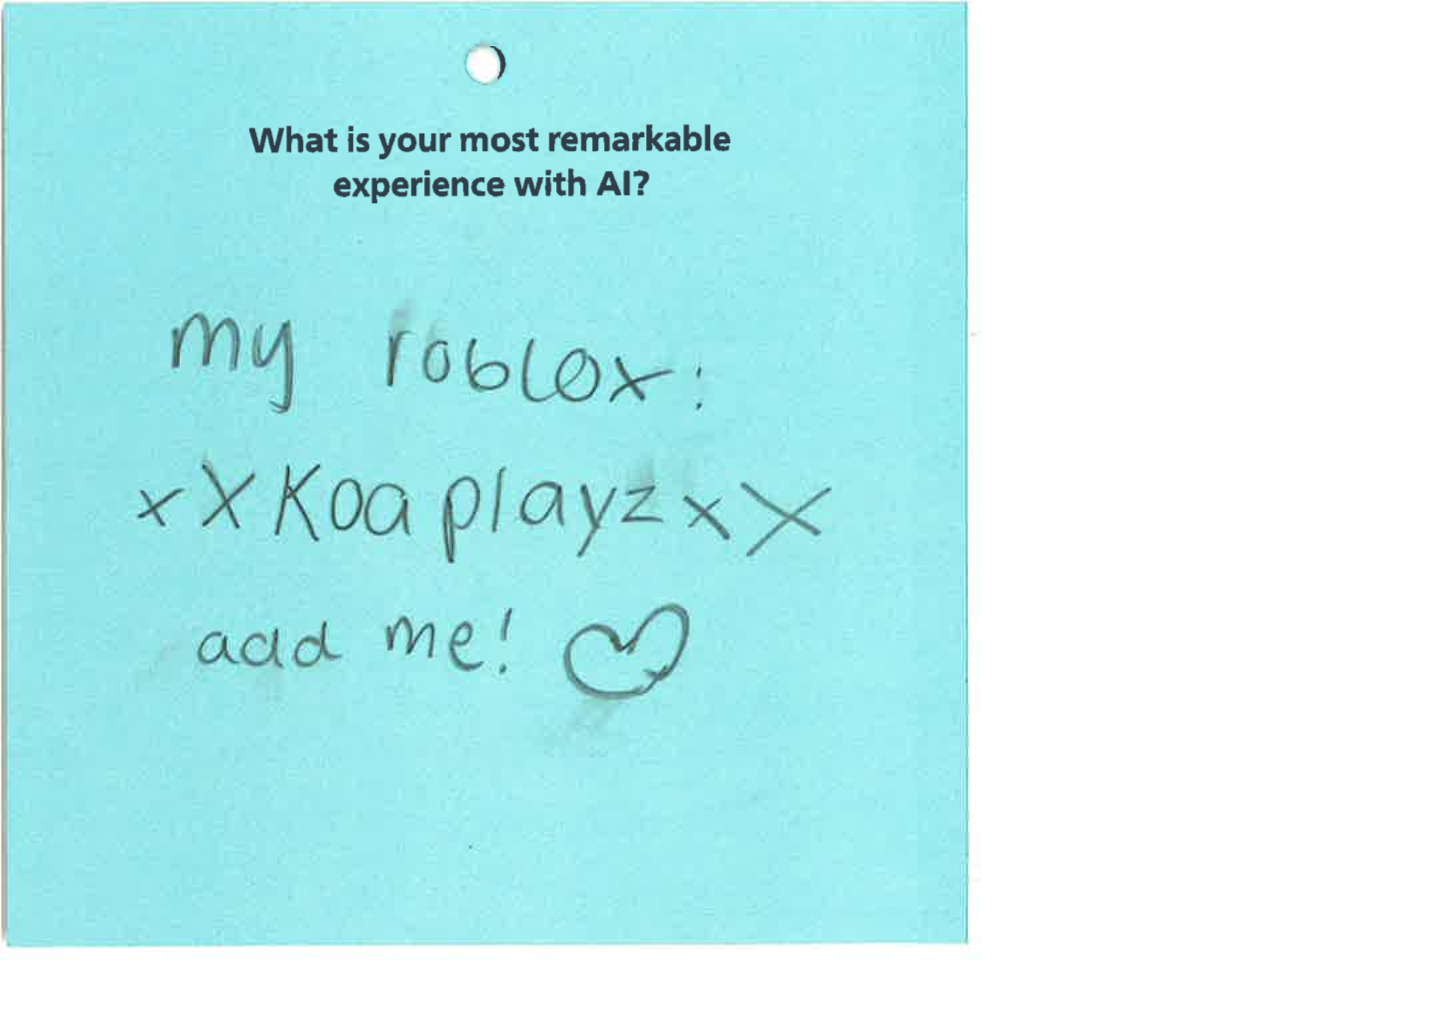 What is your most remarkable
experience with AI?
my roblox:
xXKoaplayzxX
add me!